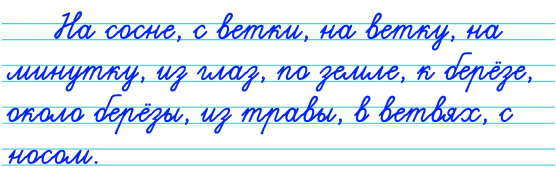 На сосне, с ветки, на ветку, на
минутку, из глаз, по земле, к берёзе,
около берёзы, из травы, в ветвях, с
носом.